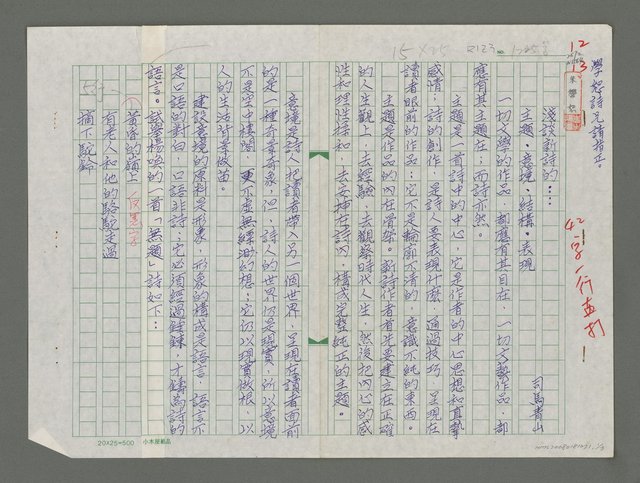 學恕詩兄請指正。
淺談新詩的…
主題、意境、結構、表現
司馬青山
一切文學的作品，都應有其自在，一切文藝作品，都
應有其主題在；而詩亦然。
主題是一首詩中的中心，它是作者的中心思想和真摯
感情；詩的創作，是詩人要表現什麼，通過技巧，呈現在
讀者眼前的作品；它不是輪廓不清的，意識不純的東西。
主題是作品的內在骨架，新詩作者首先要建立在正確
的人生觀上，去經驗，去觀察時代人生，然後把內心的感
性和理性揉和，去安坤在詩內，構成完整純正的主題。
意境是詩人把讀者帶入另一個世界，呈現在讀者面前
的是一種奇景奇象，但，詩人的世界仍是現實，所以意境
不是空中樓閣，更不虛無縹渺的想；它仍以現實做根，以
人的生活背景做苗。
建設意境的原料是形象，形象的構成是語言，語言不
是口語的對白，口語非詩，它必須經過錘鍊，才鑄為詩的
語言。試舉楊喚的一首「無題」詩如下：
首次的嶺上
有老人和他的駱駝走過
摘下駝鈴
15×25
42字一行直打
12
13
20×25=500 小木屋紙品